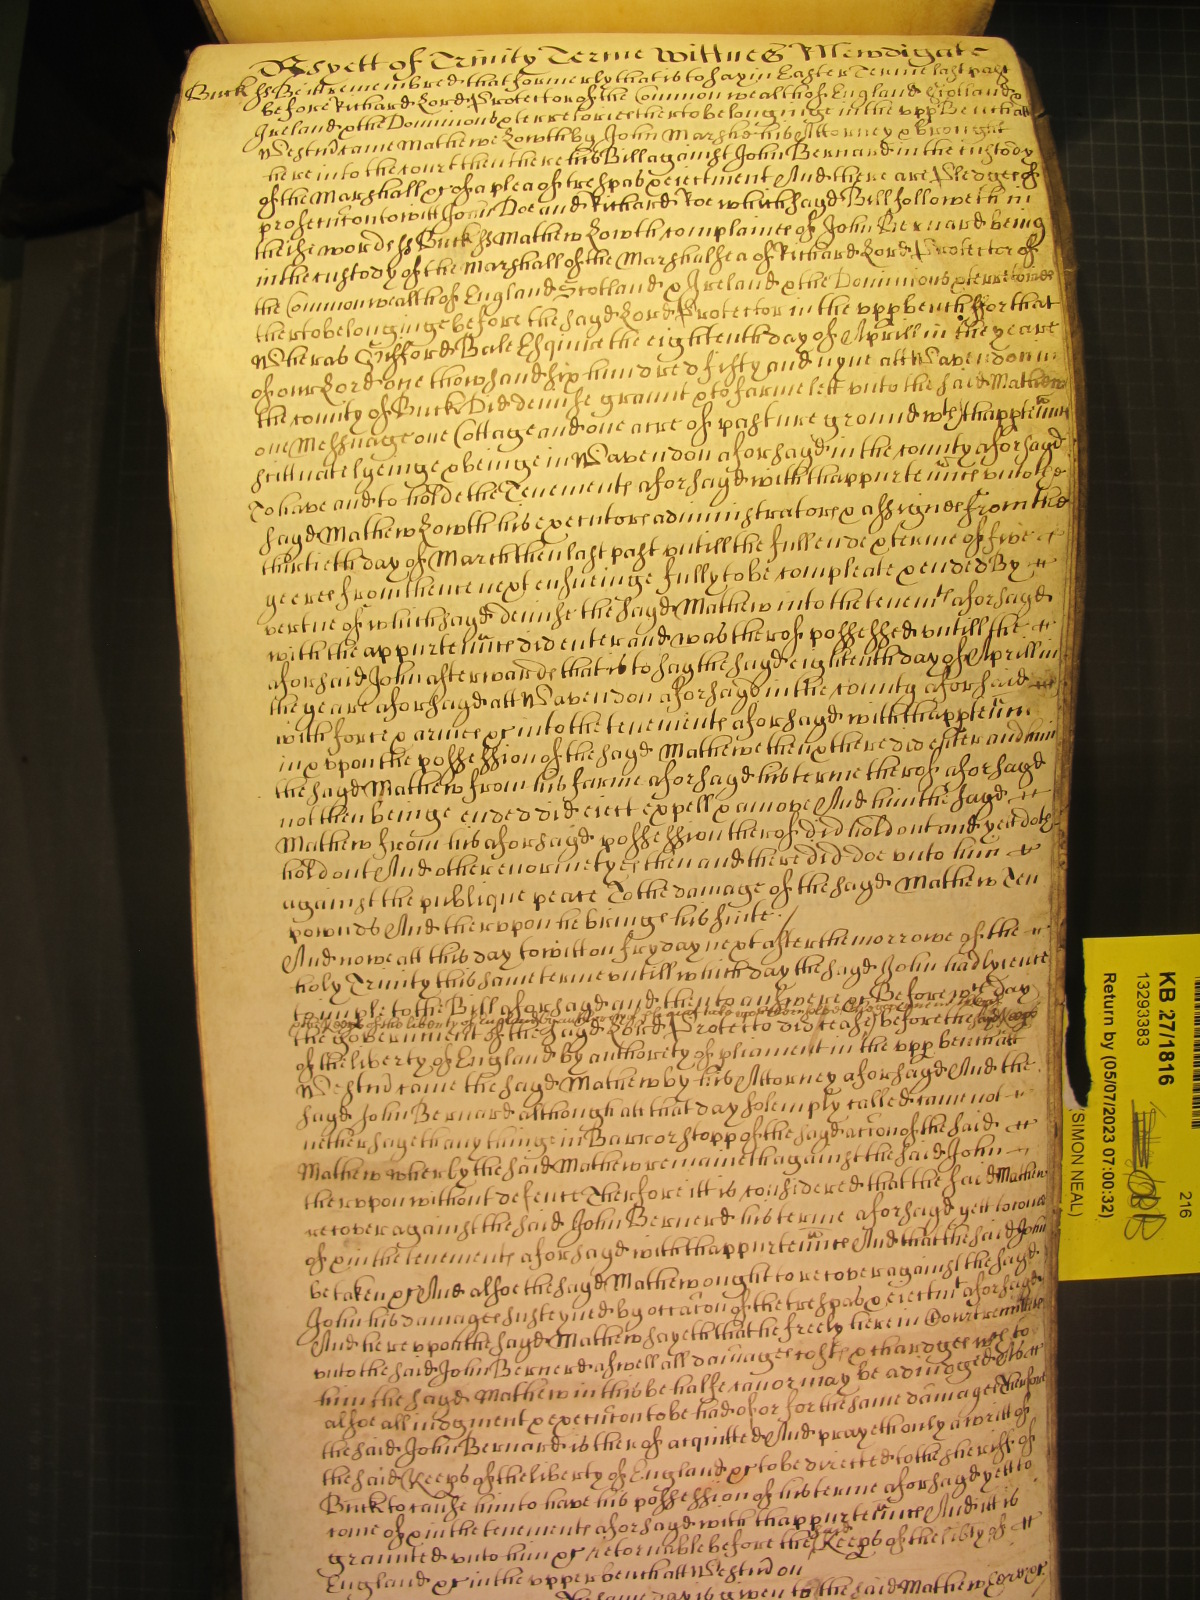 As yett of Trinity Terme Wittnes R Newdigate
Buck ss Be it remembred that formerly that is to say in Easter Terme last past
before Richard Lord Protector of the Commonwealth of England Scotland &
Ireland & the Dominions & terretories therto belonginge in the upp Bench att
Westmr came Mathewe Lowth by John Marsh his Attorney & brought
here into the court then there his Bill against John Bernard in the custody
of the Marshall &c of a plea of trespas & eiectment And there are Pledges of
prosecucon to witt John Doe and Richard Roe which sayd Bill followeth in
theise words ss Buck ss Mathew Lowth complaines of John Bernard being
in the custody of the Marshall of the Marshalsea of Richard Lord Protector of
the Commonwealth of England Scotland & Ireland & the Dominions & terretories
therto belonginge before the sayd Lord Protector in the upp bench ffor that
Wheras Gifford Bale Esquire the eightenth day of Aprill in the yeare
of our Lord one thowsand six hundred fifty and nyne att Wavendon in
the county of Buck Did demise graunt & to farme lett unto the said Mathew
one Messuage one Cottage and one acre of pasture ground wth thapptenn
scittuate lyeinge & beinge in Wavendon aforsayd in the county aforsayd
To have and to holde the Tenements aforsayd with thappurtennces unto the
sayd Mathew Lowth his executors administrators & assignes from the
thirtieth day of March then last past untill the full ende & terme of five
yeeres from thence next ensueinge fully to be compleate & ended By
vertue of which sayd demise the sayd Mathew into the tenemts aforsayd
with the appurtennces did enter and was therof possessed untill the
aforsaid John afterwards that is to say the sayd eightenth day of Aprill in
the yeare aforsayd att Wavendon aforsayd in the county aforsaid
with force & armes &c into the tenements aforsayd with thapptenn
in & upon the possession of the sayd Mathewe then & there did enter and him
the sayd Mathew from his farme aforsayd his terme therof aforsayd
not then beinge ended did eiect expell & amove And him the sayd
Mathew from his aforsayd possession therof did hold out and yet doth
hold out And other enormetyes then and there did doe unto him
against the publique peace To the damage of the sayd Mathew Ten
pownds And therupon he brings his suite
And nowe att this day to witt on fryday next after the morrowe of the
holy Trinity this same terme untill which day the sayd John had lycence
to imple to the Bill aforsayd and then to answere &c Before wch day
the government of the sayd Lord Protector did cease before the
of the liberty of England by authorety of pliament in the upp bench att
Westmr came the sayd Mathew by his Attorney aforsayd And the
sayd John Bernard although att that day solemply called came not
nether sayeth any thinge in Barr or stopp of the sayd accon of the said
Mathew wherby the said Mathew remaineth against the said John
therupon without defence Therfore itt is considered that the said Mathew
recover against the said John Bernerd his terme aforsayd yett to come
of & in the tenements aforsayd with thappurtennces And that the said John
be taken &c And alsoe the sayd Mathew ought to recover against the sayd
John his damages susteyned by occacon of the trespas & eiectmt aforsayd
And hereuppon the sayd Mathew sayeth that he freely here in Court remitteth
unto the said John Bernerd aswell all damages costs & chardges wch to
him the sayd Mathew in this behalfe can or may be adiudged As
alsoe all iudgment & execucon to be had of or for the same damages Therfore
the said John Bernard is therof acquitted And prayeth only a writt of
the said Keeps of the liberty of England &c to be directed to the sheriff of
Buck to cause him to have his possession of his terme aforsayd yett to
come of & in the tenements aforsayd with thappurtennces And itt is
graunted unto him &c returnable before the said Keeps of the libty of
England &c in the upper bench att Westmr on
The same day is given to the said Mathew
KB 27/1816
13293383
Return by (05/07/2023 07:00:32)
(SIMON NEAL)
216